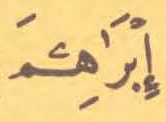 إِبْرَٰهِـۧمَ